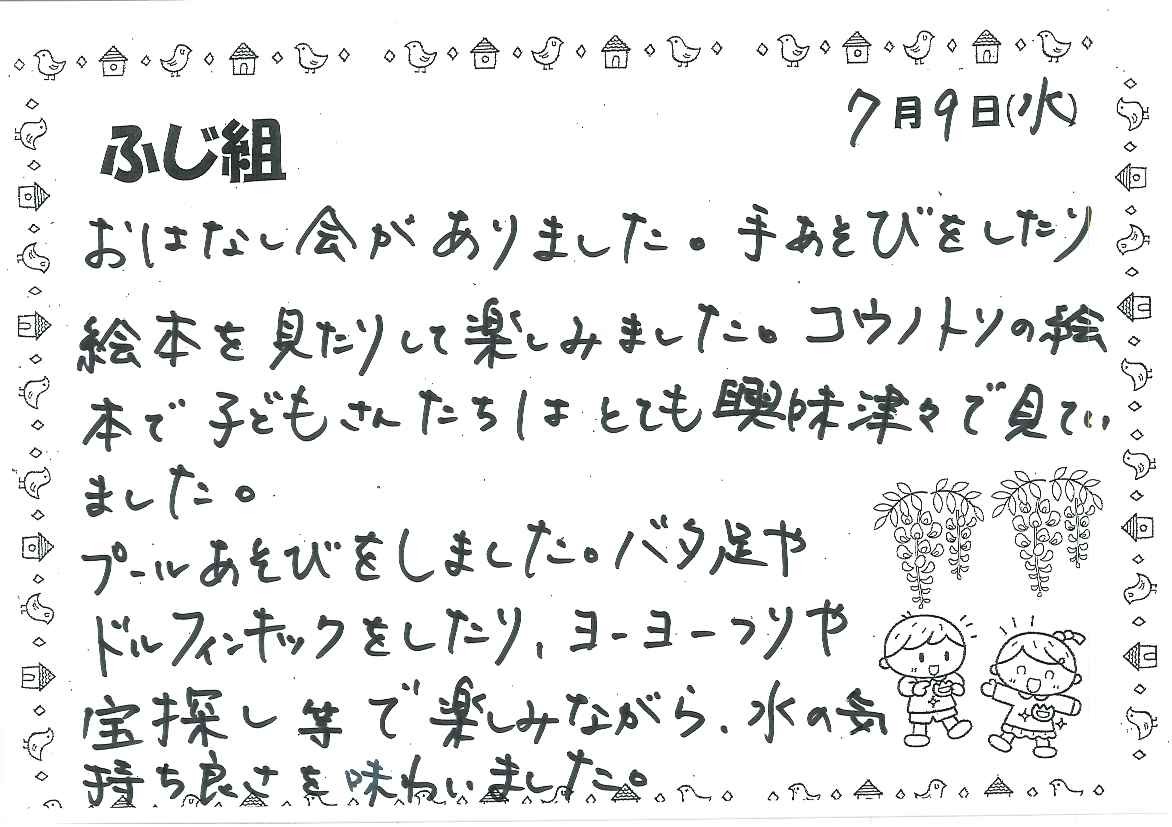 7月9日(水)
ふじ組
おはなし会がありました。手あそびをしたり
絵本を見たりして楽しみました。コウノトリの絵
本で子どもさんたちはとても興味津々で見てい
ました。
プールあそびをしました。バタ足や
ドルフィンキックをしたり、ヨーヨーつりや
宝探し等で楽しみながら、水の気
持ち良さを味わいました。